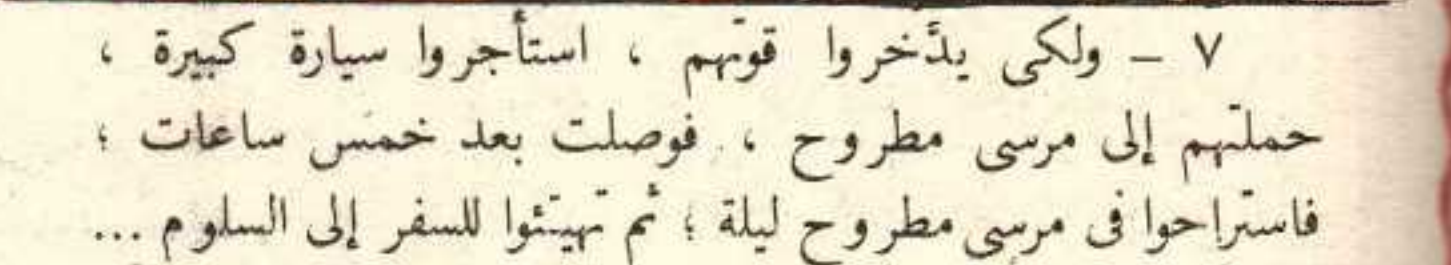 ٧ – ولكى يدَّخروا قوتهم ، استأجروا سيارة كبيرة ،
حملتهم إلى مرسى مطروح ، فوصلت بعد خمس ساعات ؛
فاستراحوا فى مرسى مطروح ليلة ؛ ثم تهيئوا للسفر إلى السلوم ...